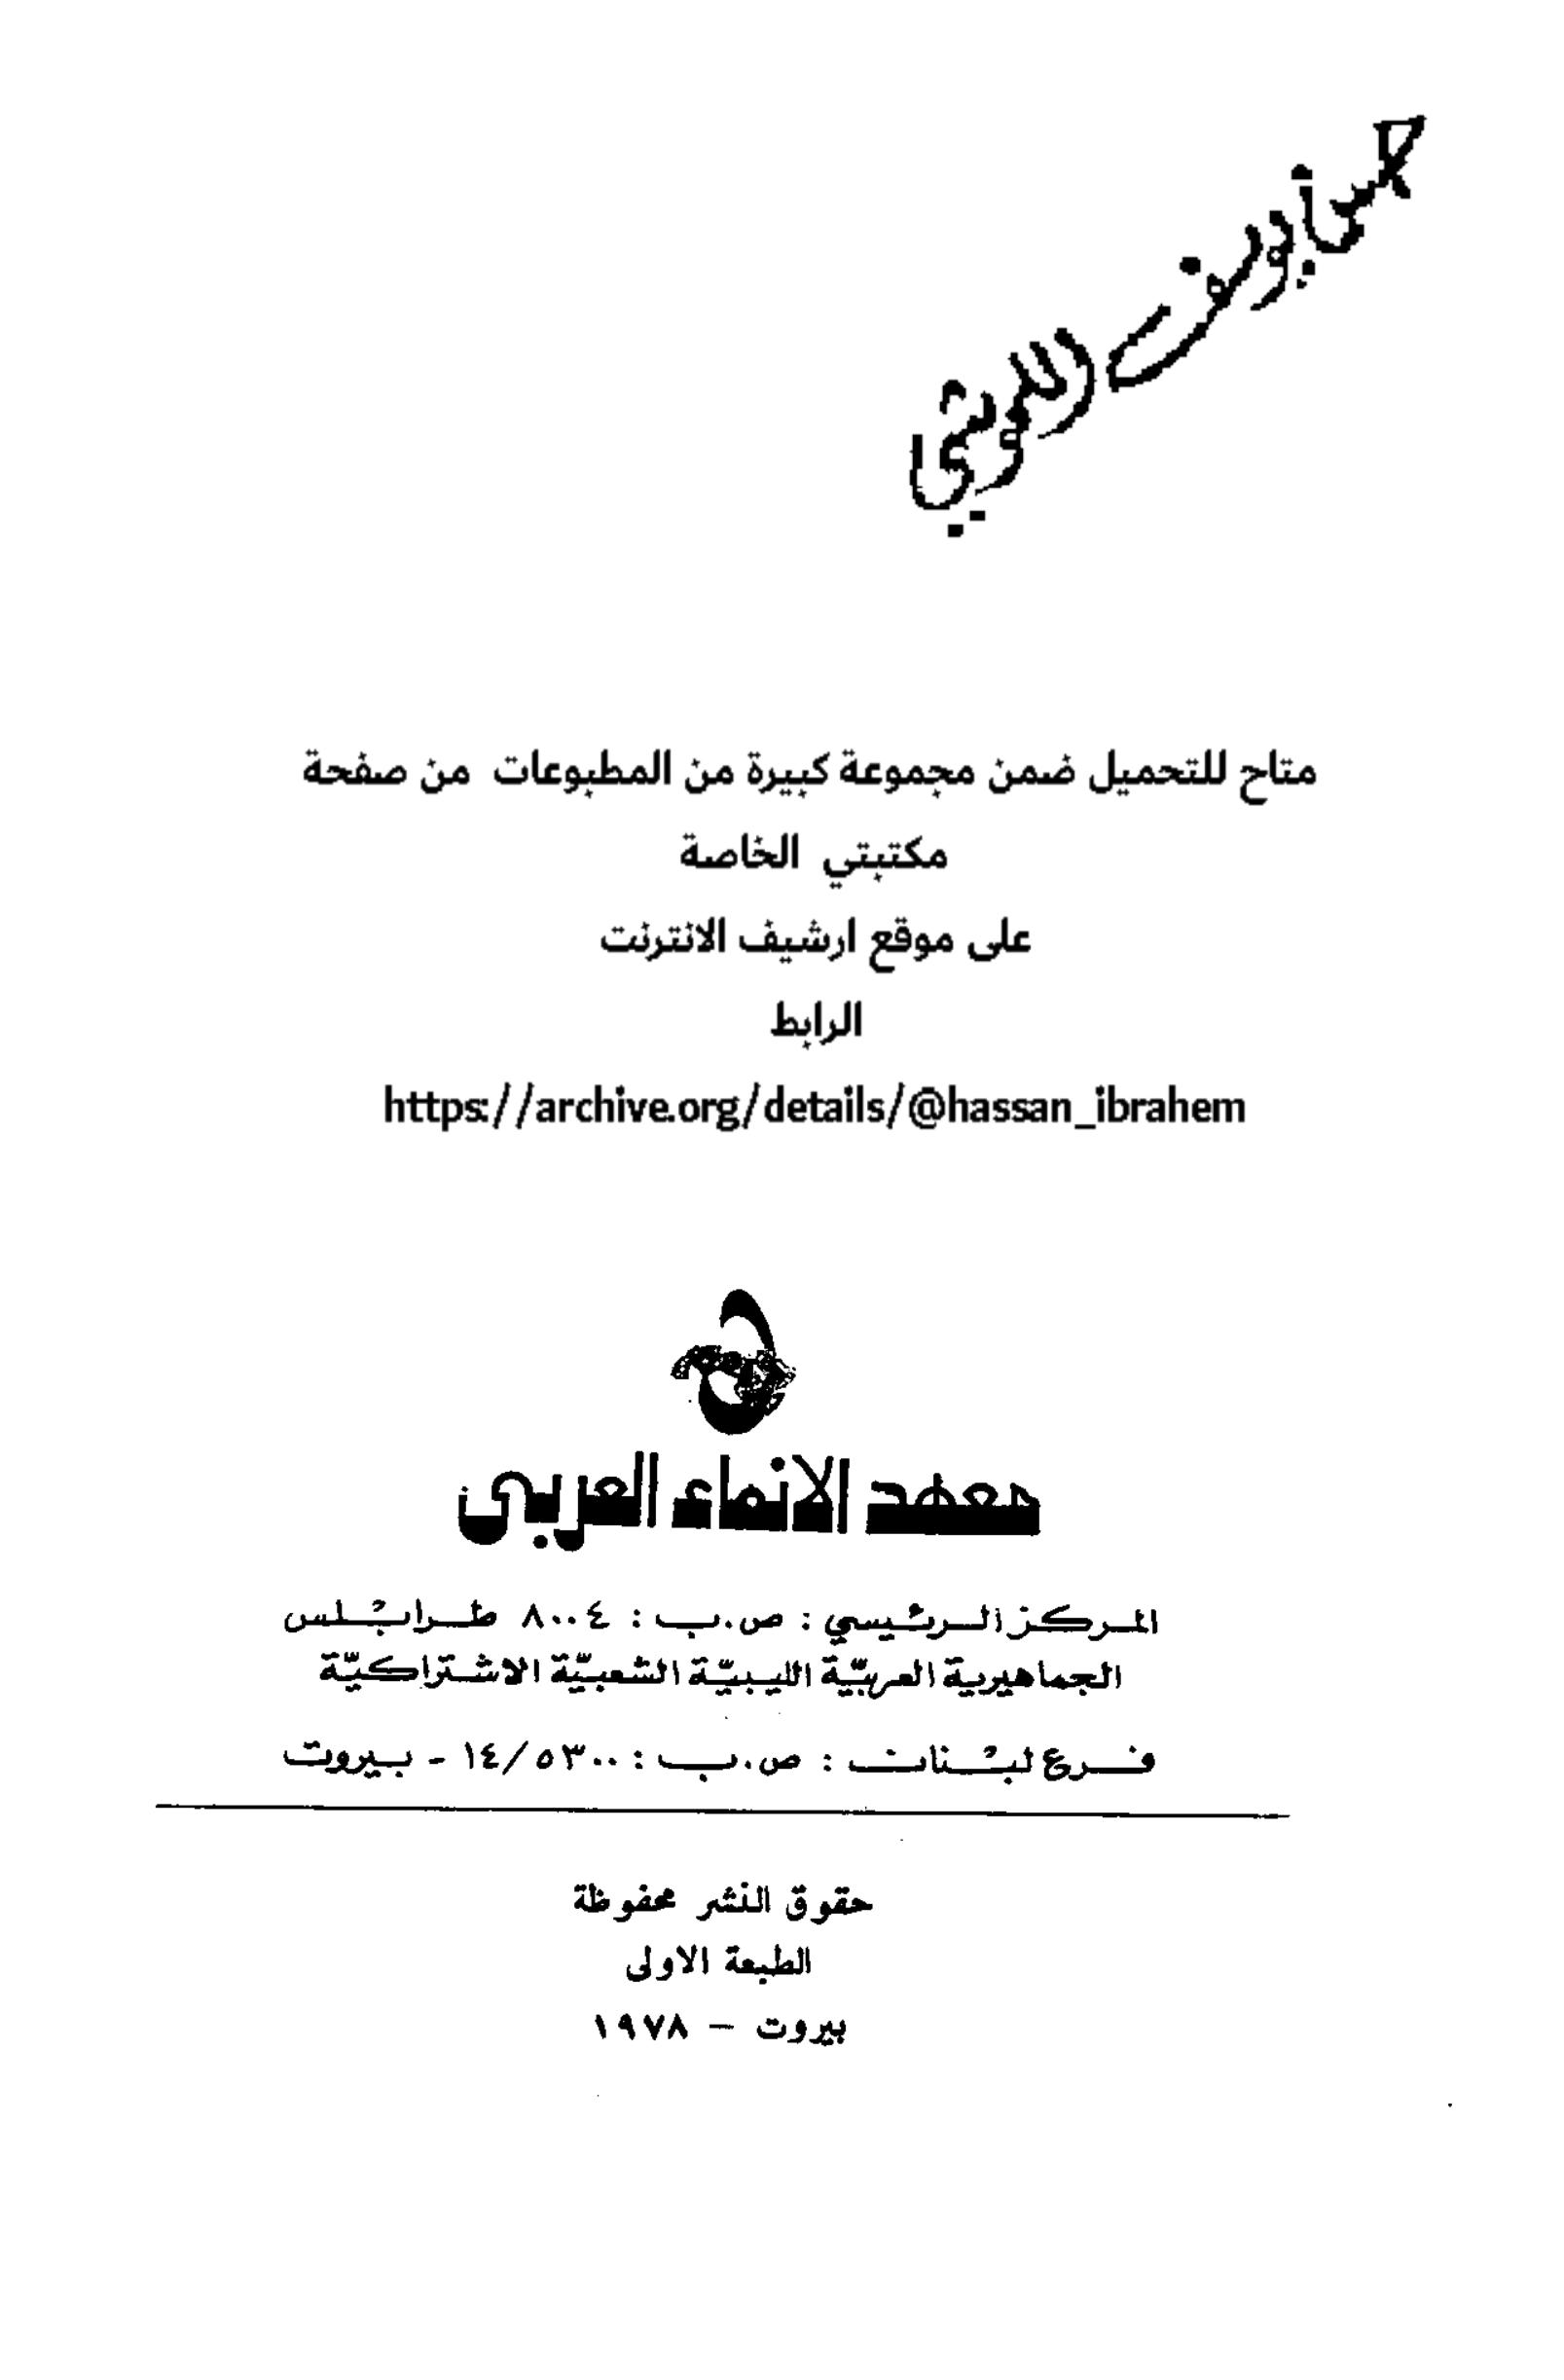 متاح للتحميل ضمن مجموعة كبيرة من المطبوعات من صفحة
مكتبتي الخاصة
على موقع ارشيف الانترنت
الرابط
https://archive.org/details/@hassan_ibrahem
معهد الانماء العربي
المركز الرئيسي : ص.ب : ٨٠٠٤ طرابلس
الجماهيرية العربيّة الليبيّة الشعبيّة الاشتراكيّة
فرع لبنان : ص.ب : ١٤/٥٣٠٠ - بيروت
حقوق النشر محفوظة
الطبعة الاولى
بيروت – ١٩٧٨